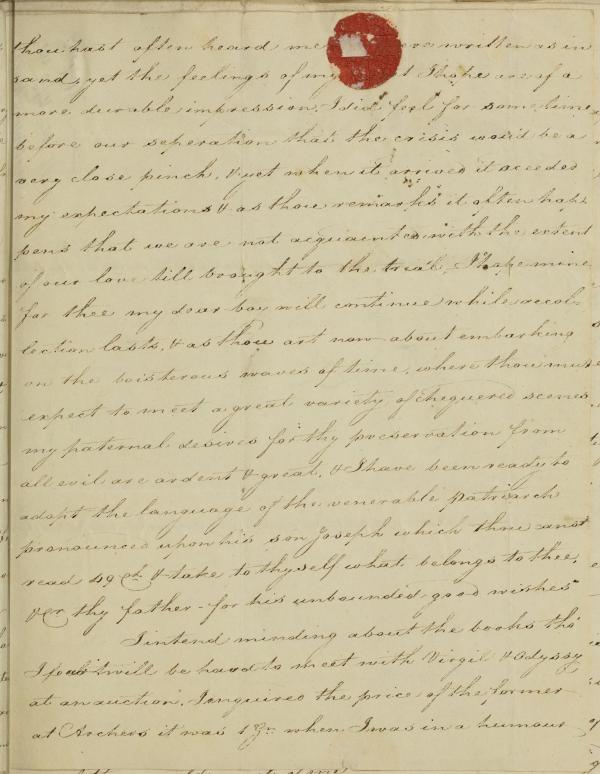 thou hast often heard me were written as in
sand, yet the feelings of my t I hope are of a
more durable impression. I did feel for some time
before our seperation that the crisis would be a
very close pinch, & yet when it arrived it acceded
my expectations & as thou remarks it often hap-
pens that we are not acquainted with the extent
of our love till brought to the trial. I hope mine
for thee my dear boy will continue while recol-
lection lasts, & as thou art now about embarking
on the boisterous waves of time, where thou must
expect to meet a great variety of chequered scenes
my paternal desires for thy preservation from
all evil are ardent & great, & I have been ready to
adopt the language of the venerable Patriarch
pronounced upon his son Joseph which thou canst
read 49 Ch & take to thyself what belongs to thee.
thy father for his unbounded good wishes
I intend minding about the books tho'
I fear twill be hard to meet with Virgil & Odyssy
at an auction. I enquired the price of the former
at Archers it was 1 Gn when I was in a humour